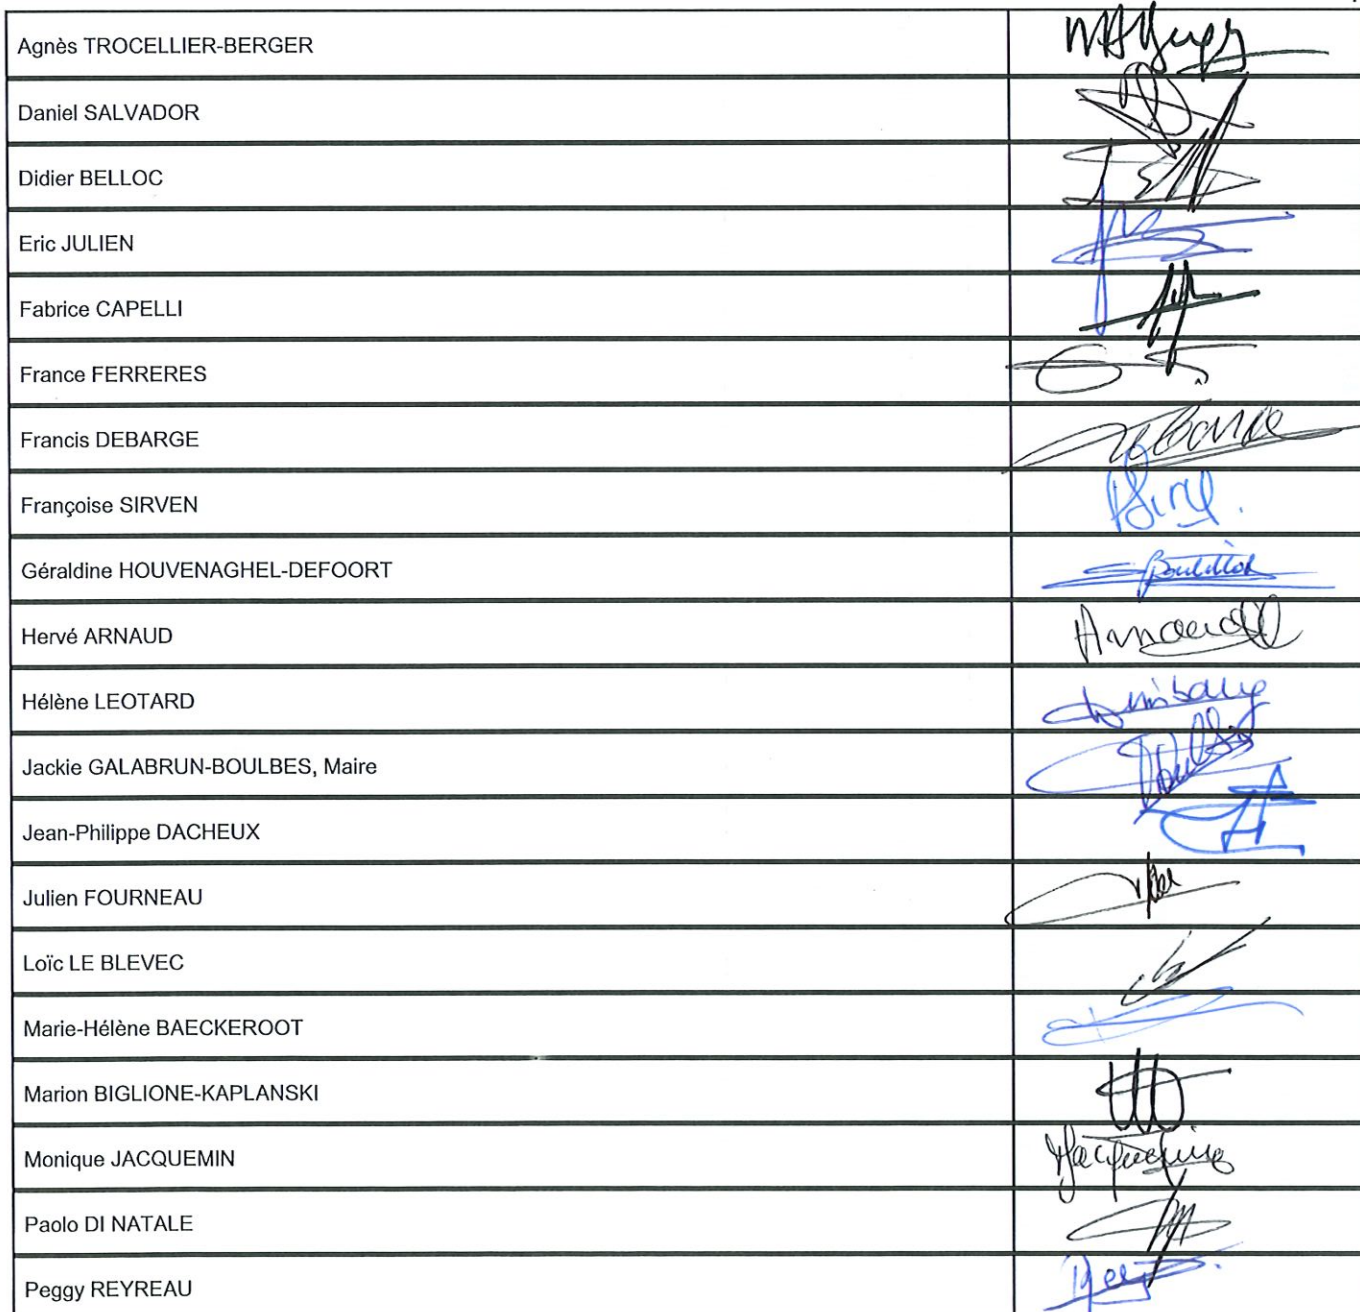 Agnès TROCELLIER-BERGER
Daniel SALVADOR
Didier BELLOC
Eric JULIEN
Fabrice CAPELLI
France FERRERES
Francis DEBARGE
Françoise SIRVEN
Géraldine HOUVENAGHEL-DEFOORT
Hervé ARNAUD
Hélène LEOTARD
Jackie GALABRUN-BOULBES, Maire
Jean-Philippe DACHEUX
Julien FOURNEAU
Loïc LE BLEVEC
Marie-Hélène BAECKEROOT
Marion BIGLIONE-KAPLANSKI
Monique JACQUEMIN
Paolo DI NATALE
Peggy REYREAU